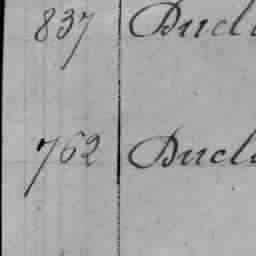 837 Ducl
762 Ducl